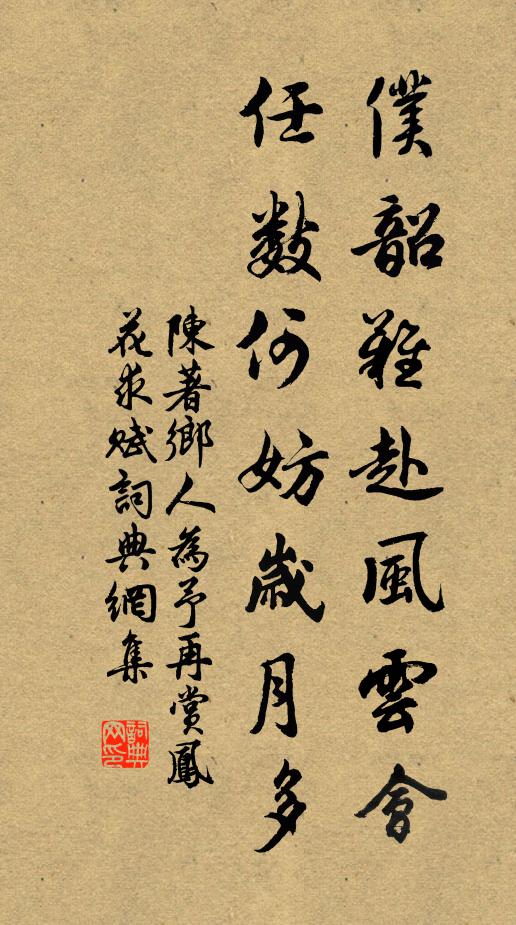 僕韶難赴風雲會
任数何妨歲月多
陳著鄉人為予再賞鳳
花求賦詞典網集
詞典网印